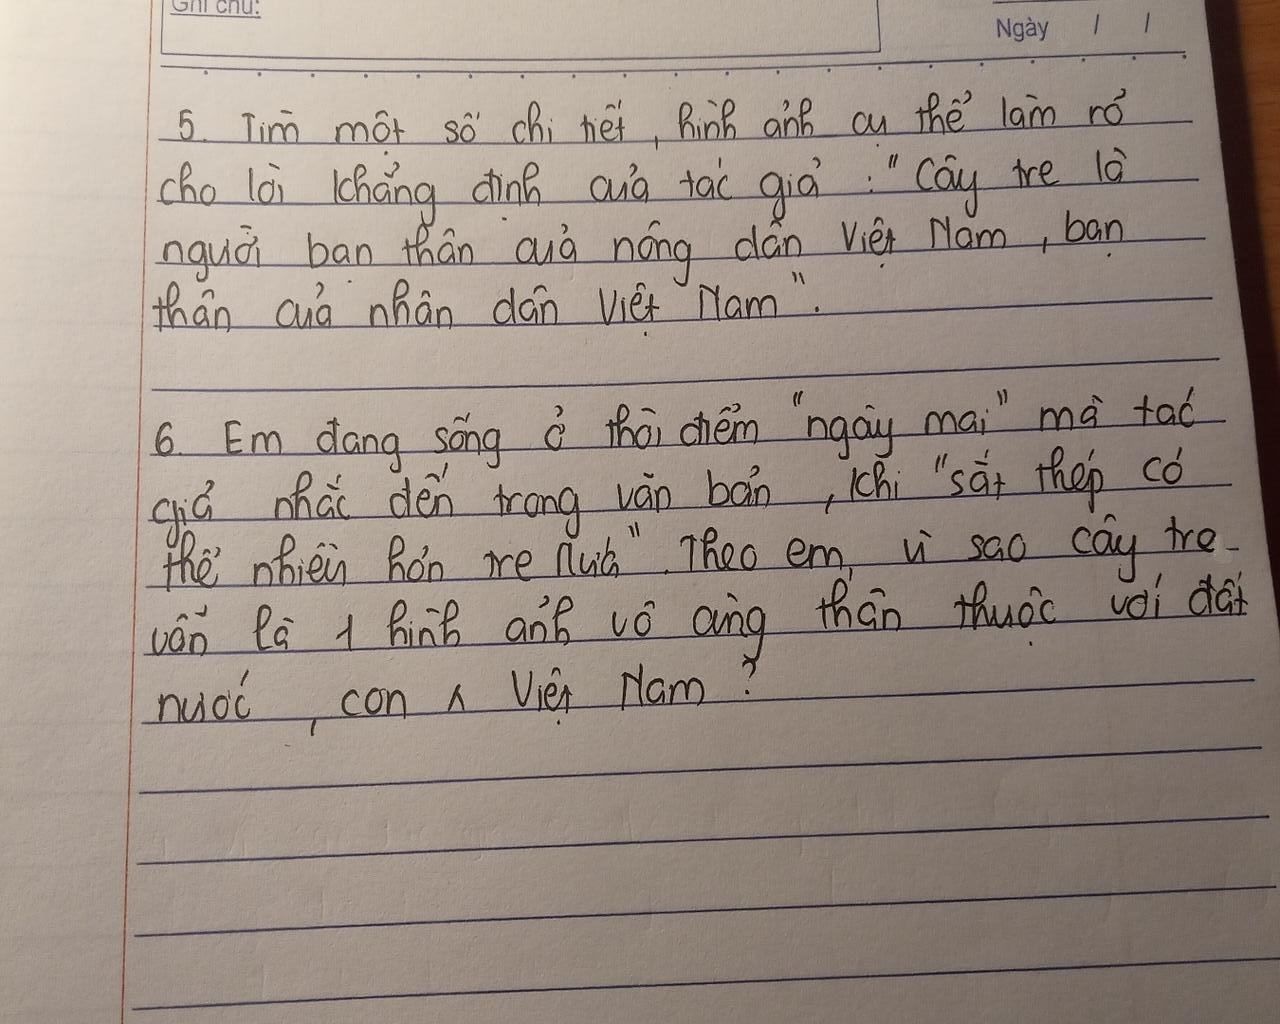 Ghi chú:
Ngày / /
5. Tìm một số chi tiết, hình ảnh cụ thể làm rõ
cho lời khẳng định của tác giả : "Cây tre là
người bạn thân của nông dân Việt Nam, bạn
thân của nhân dân Việt Nam".
6. Em đang sống ở thời điểm "ngày mai" mà tác
giả nhắc đến trong văn bản, khi "sắt thép có
thể nhiều hơn tre nứa". Theo em, vì sao cây tre
vẫn là 1 hình ảnh vô cùng thân thuộc với đất
nước, con ʌ Việt Nam?